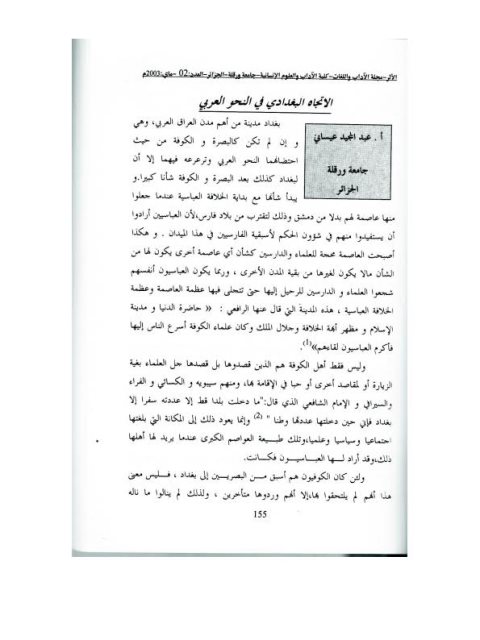 الأثر-مجلة الآداب واللغات-كلية الآداب والعلوم الإنسانية-جامعة ورقلة-الجزائر-العدد:02 -ماي:2003م
الاتجاه البغدادي في النحو العربي
أ. عبد المجيد عيساني
جامعة ورقلة
الجزائر
بغداد مدينة من أهم مدن العراق العربي، وهي
و إن لم تكن كالبصرة و الكوفة من حيث
احتضانهما النحو العربي وترعرعه فيهما إلا أن
لبغداد كذلك بعد البصرة و الكوفة شأنا كبيرا.و
يبدأ شأنها مع بداية الخلافة العباسية عندما جعلوا
منها عاصمة لهم بدلا من دمشق وذلك لتقترب من بلاد فارس،لأن العباسيين أرادوا
أن يستفيدوا منهم في شؤون الحكم لأسبقية الفارسيين في هذا الميدان . و هكذا
أصبحت العاصمة محجة للعلماء والدارسين كشأن أي عاصمة أخرى يكون لها من
الشأن مالا يكون لغيرها من بقية المدن الأخرى ، وربما يكون العباسيون أنفسهم
شجعوا العلماء و الدارسين للرحيل إليها حتى تتجلى فيها عظمة العاصمة وعظمة
الخلافة العباسية ، هذه المدينة التي قال عنها الرافعي : « حاضرة الدنيا و مدينة
الإسلام و مظهر أبهة الخلافة وجلال الملك وكان علماء الكوفة أسرع الناس إليها
فأكرم العباسيون لقاءهم»(1).
وليس فقط أهل الكوفة هم الذين قصدوها بل قصدها جل العلماء بغية
الزيارة أو لمقاصد أخرى أو حبا في الإقامة بها،ومنهم سيبويه و الكسائي و الفراء
والسيرافي و الإمام الشافعي الذي قال:"ما دخلت بلدا قط إلا عددته سفرا إلا
بغداد فإني حين دخلتها عددتها وطنا " (2) وإنما يعود ذلك إلى المكانة التي بلغتها
اجتماعيا وسياسيا وعلميا،وتلك طبيعة العواصم الكبرى عندما يريد لها أهلها
ذلك،وقد أراد لـها العباسيون فكانت.
ولئن كان الكوفيون هم أسبق من البصريين إلى بغداد ، فليس معنى
هذا أنهم لم يلتحقوا بها،إلا أنهم وردوها متأخرين ، ولذلك لم ينالوا ما ناله
155